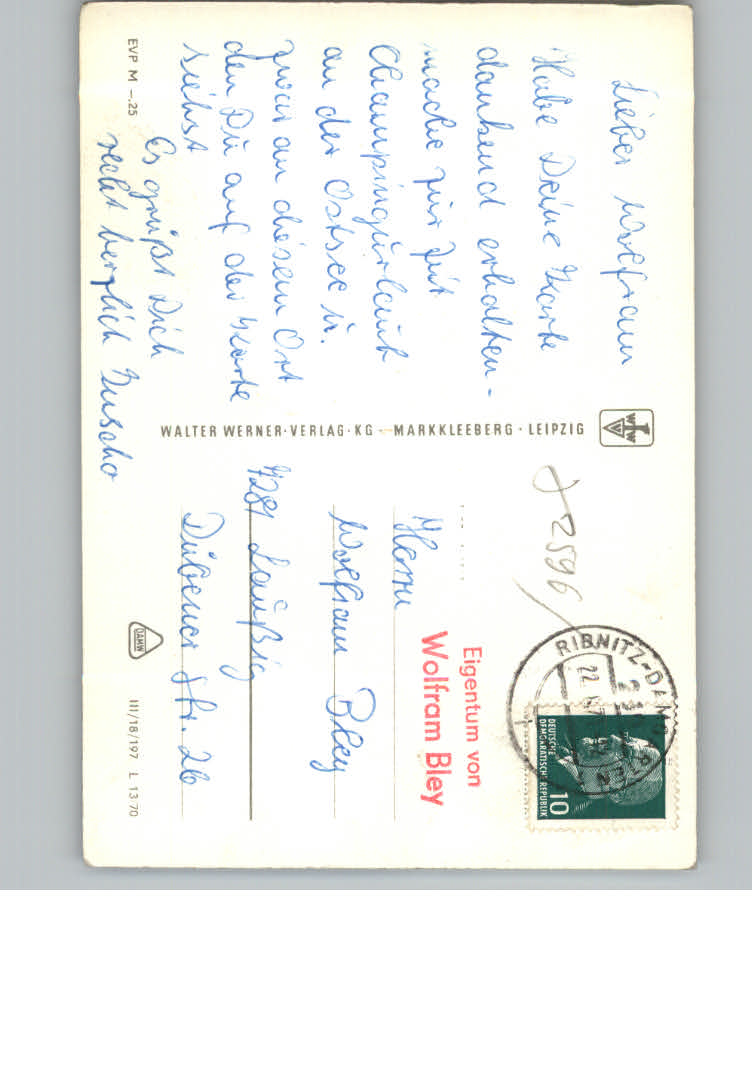 Lieber Wolfram
Habe Deine Karte
dankend erhalten -
mache zur Zeit
Champingurlaub
an der Ostsee u.
zwar an diesem Ort
den Du auf der Karte
siehst
Es grüßt Dich
recht herzlich
EVP M -.25
WALTER WERNER·VERLAG·KG - MARKKLEEBERG · LEIPZIG
WVW
82596
RIBNITZ-DAMGARTEN
22
DEUTSCHE
DEMOKRATISCHE REPUBLIK
10
Eigentum von
Wolfram Bley
Herrn
Wolfram Bley
7281 Laußig
Dübener Str. 26
DAMW
III/18/197 L 13 70